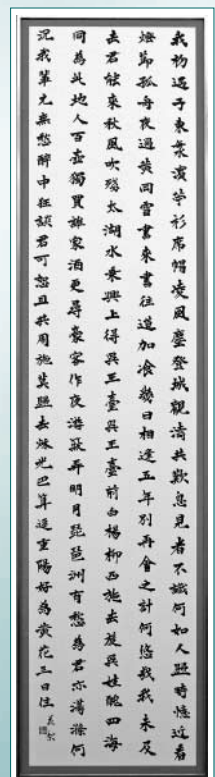 我初遇子東萊濱苧衫席帽凌風塵登城觀濤共歎息見者不識何如人時憶近看
燈節孤舟夜過黃岡雪書來書往道加飡幾日相逢五年別再會之計何悠哉我未及
去君能來秋風吹殘太湖水乘興上得吳王臺吳王臺前白楊柳西施去後吳娃醜四海
同為此地人百壺獨買誰家酒更尋豪家作夜游弄明月琵琶洲有愁為君亦滿滌何
況我輩元無愁醉中狂談君可恕且共周旋莫去秋光已算近重陽好為黃花三日住